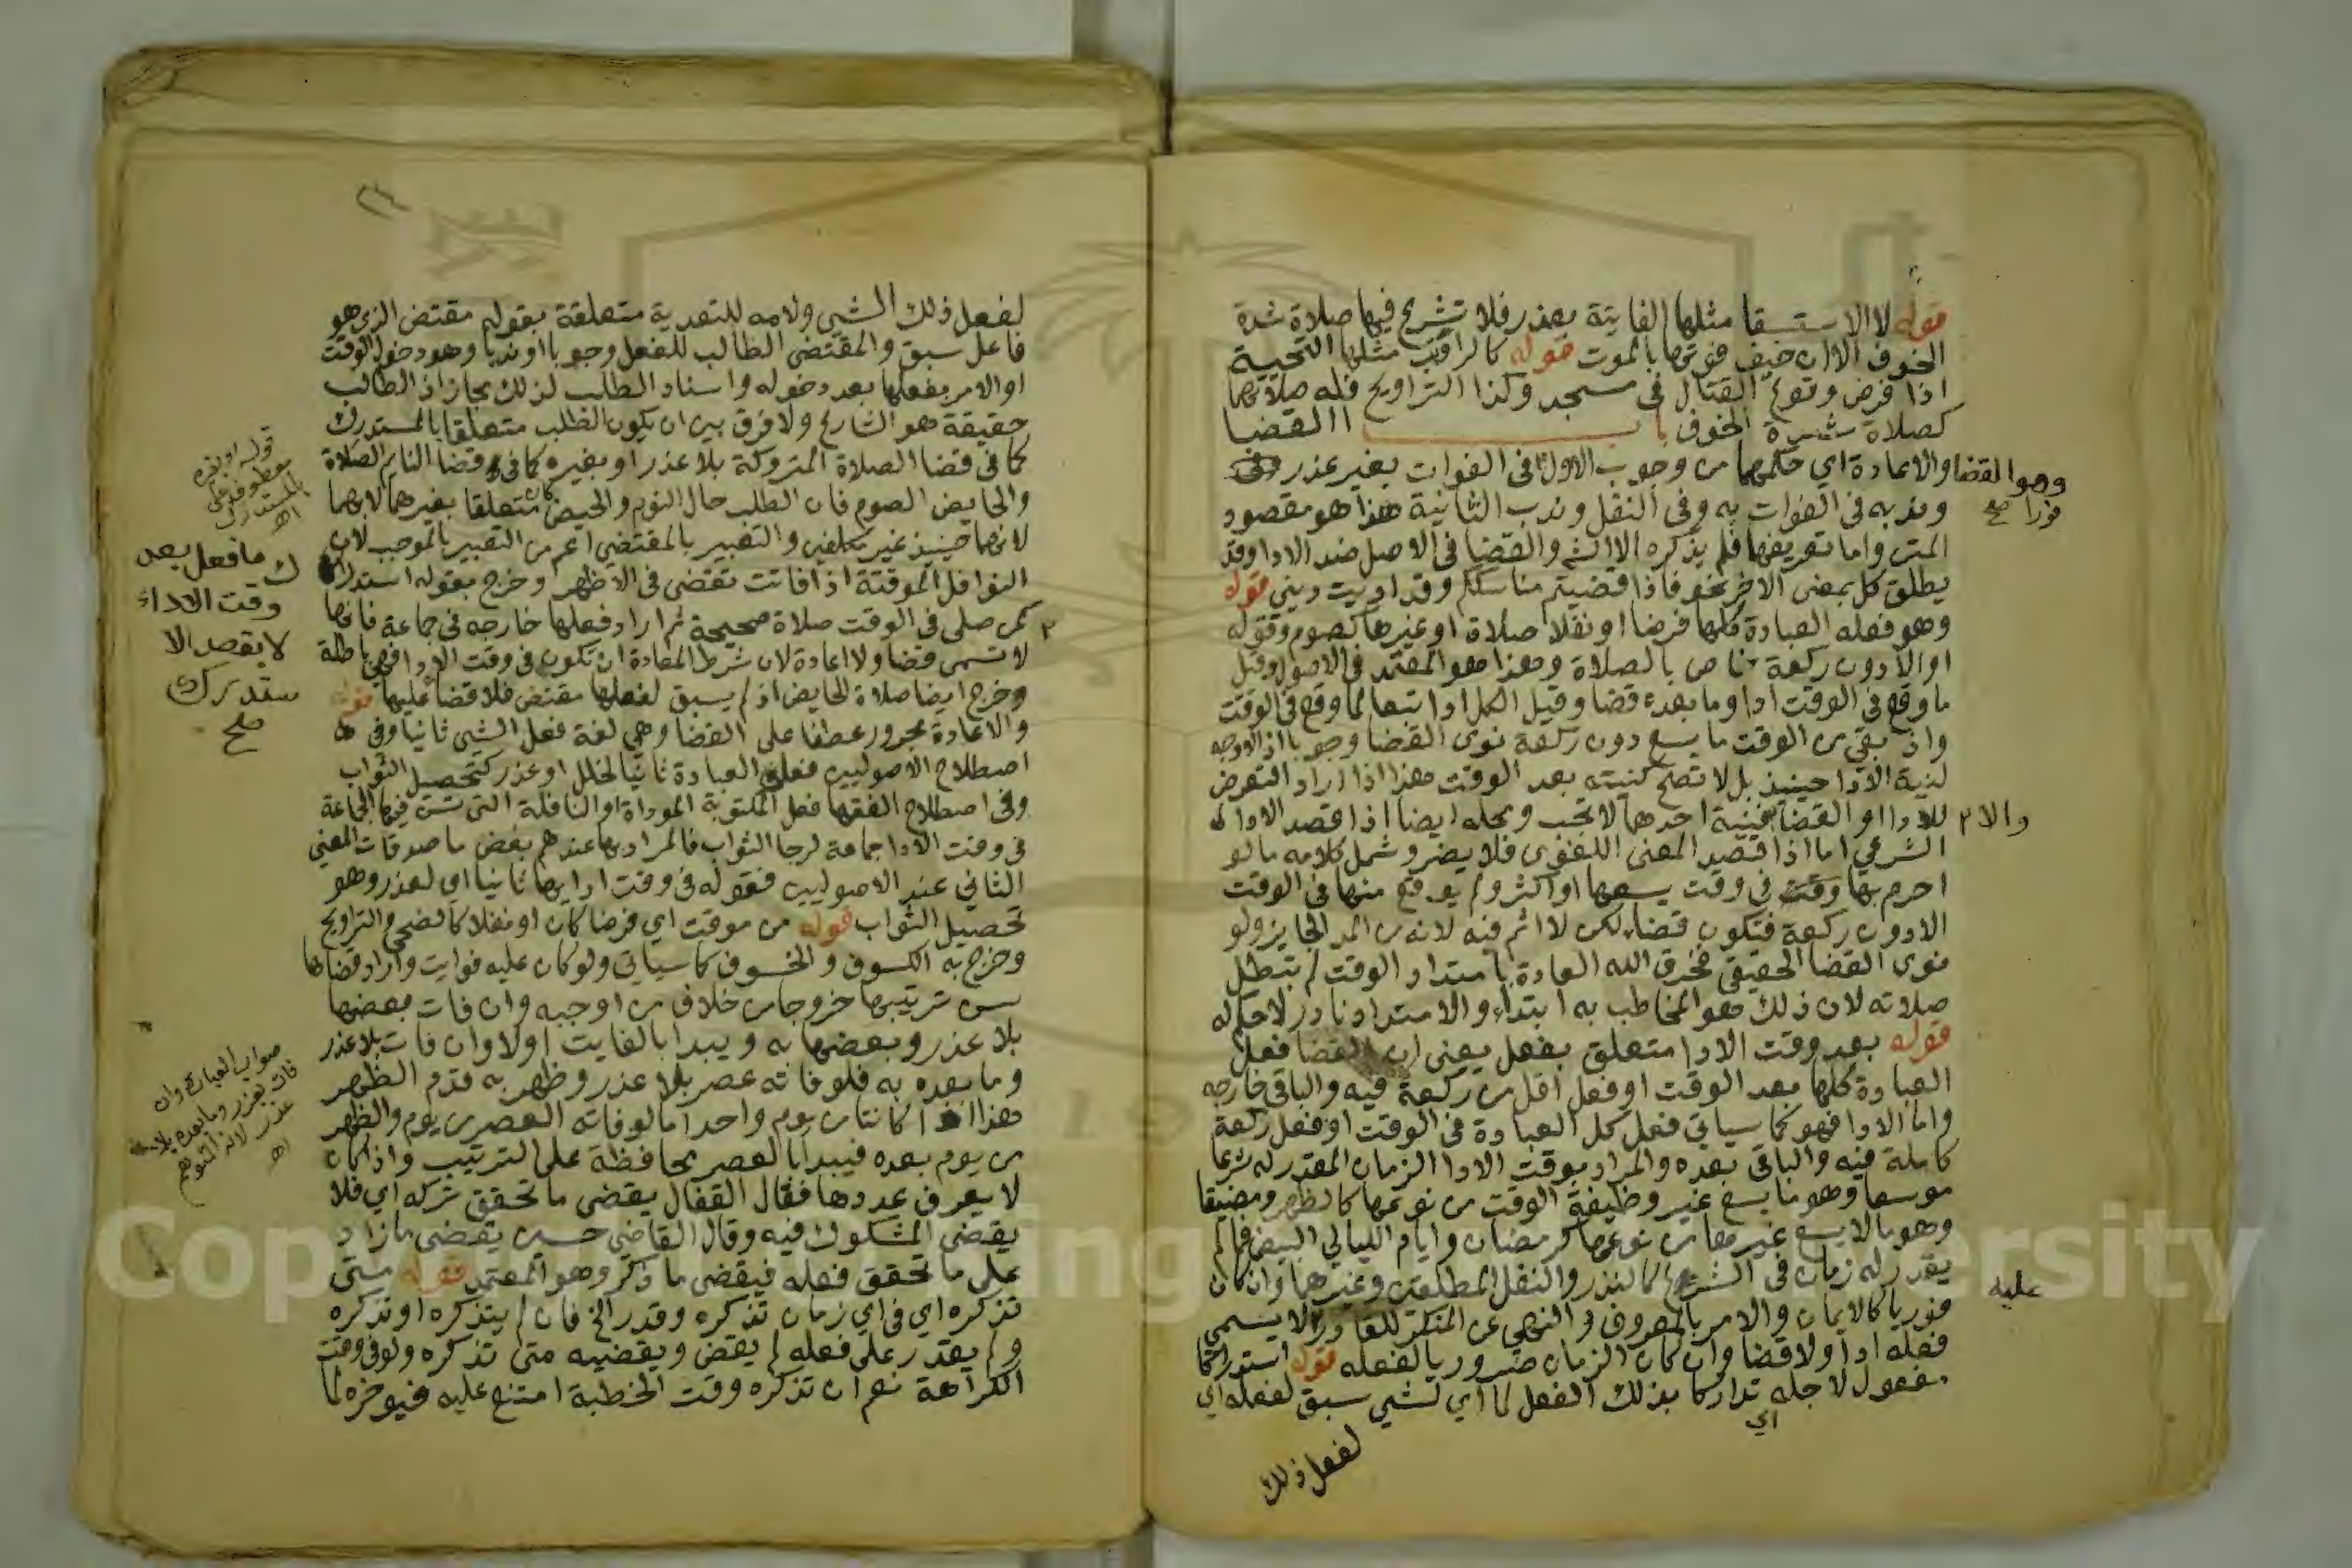 قوله لا الاستسقا مثلها الفايتة بعذر فلا تشرع فيها صلاة شدة
الخوف الا ان خيف فوتها بالموت قوله كالراتب مثلها التحية
اذا فرض وقوع القتال في مسجد وكذا التراويح فله صلاتهما
كصلاة شدة الخوف باب القضا
وهو القضا والاعادة اي حكمهما من وجوب الاول في الفوات بغير عذر
فورا صح
وندبه في الفوات به وفي النفل وندب الثانية هذا هو مقصود
المتن واما تعريفها فلم يذكره الا الش والقضا في الاصل ضد الادا وقد
يطلق كل بمعنى الاخر نحو فاذا قضيتم مناسككم وقد اديت ديني قوله
وهو فعله العبادة كلها فرضا او نفلا صلاة او غيرها كصوم وقوله
او الا دون ركعة خاص بالصلاة وهذا هو المعتمد في الاصول وقيل
ما وقع في الوقت ادا وما بعده قضا وقيل الكل ادا تبعا لما وقع في الوقت
واذ بقي من الوقت ما يسع دون ركعة نوى القضا وجوبا اذ لا وجه
لنية الادا حينيذ بل لا تصح كنيته بعد الوقت هذا اذا اراد التعرض
للادا او القضا فنية احدهما لا تجب ومحله ايضا اذا قصد الادا
والا
الشرعي اما اذا قصد المعنى اللغوي فلا يضر وشمل كلامه ما لو
احرم بها وقت في وقت يسعها او اكثر ولم يوقع منها في الوقت
الا دون ركعة فتكون قضا لكن لا اثم فيه لانه من المد الجايز ولو
نوى القضا الحقيقي فخرق الله العادة بامتداد الوقت لم تبطل
صلاته لان ذلك هو المخاطب به ابتداء والامتداد نادر لا حكم له
قوله بعد وقت الادا متعلق بفعل يعني ان القضا فعل
العبادة كلها بعد الوقت او فعل اقل من ركعة فيه والباقي خارجه
واما الادا فهو كما سياتي فعل كل العبادة في الوقت او فعل ركعة
كاملة فيه والباقي بعده والمراد بوقت الادا الزمان المقدر له شرعا
موسعا وهو ما يسع غير وظيفة الوقت من نوعها كالظهر ومضيقا
وهو ما لا يسع غيرها من نوعها كرمضان وايام الليالي البيض فما لم
يقدر له زمان في الشرع كالنذر والنفل المطلقين وغيرها وان كان
عليه
فوريا كالايمان والامر بالمعروف والنهي عن المنكر للقادر لا يسمى
فعله ادا ولا قضا وان كان الزمان ضروريا لفعله قوله استدراكا
مفعول لاجله تداركا بذلك الفعل لما اي لشي سبق لفعله اي
اي
لفعل ذلك
لفعل ذلك الشي ولامه للتعدية متعلقة بقوله مقتض الذي هو
فاعل سبق والمقتضى الطالب للفعل وجوبا او ندبا وهو دخول الوقت
او الامر بفعلها بعد دخوله واسناد الطلب لذلك مجاز اذ الطالب
حقيقة هو الشارع ولا فرق بين ان يكون الطلب متعلقا بالمستدرك
كما في قضا الصلاة المتروكة بلا عذر او بغيره كما في قضا النايم الصلاة
والحايض الصوم فان الطلب حال النوم والحيض كان متعلقا بغيرهما لا بهما
لانهما حينيذ غير مكلفين والتعبير بالمقتضي اعم من التعبير بالموجب لان
النوافل الموقتة اذا فاتت تقضى في الاظهر وخرج بقوله استدراك
كمن صلى في الوقت صلاة صحيحة ثم اراد فعلها خارجه في جماعة فانها
لا تسمى قضا ولا اعادة لان شرط المعادة ان تكون في وقت الادا فهي باطلة
وخرج ايضا صلاة الحايض اذ لم يسبق لفعلها مقتض فلا قضا عليها قوله
والاعادة مجرور عطفا على القضا وهي لغة فعل الشي ثانيا وفي
اصطلاح الاصوليين فعل العبادة ثانيا لخلل او عذر كتحصيل الثواب
وفي اصطلاح الفقها فعل المكتوبة الموداة او النافلة التي تسن فيها الجماعة
في وقت الادا جماعة لرجا الثواب فالمراد بها عندهم بعض ما صدقات المعنى
الثاني عند الاصوليين فقوله في وقت ادايها ثانيا اي لعذر وهو
تحصيل الثواب قوله من موقت اي فرضا كان او نفلا كالضحى والتراويح
وخرج به الكسوف والخسوف كما سياتي ولو كان عليه فوايت واراد قضاها
سن ترتيبها خروجا من خلاف من اوجبه وان فات بعضها
بلا عذر وبعضها به ويبدا بالفايت اولا وان فات بلا عذر
وما بعده به فلو فاته عصر بلا عذر وظهر به قدم الظهر
هذا اذا كانتا من يوم واحد اما لو فاته العصر من يوم والظهر
من يوم بعده فيبدا بالعصر محافظة على الترتيب واذ كان
لا يعرف عددها فقال القفال يقضي ما تحقق تركه اي فلا
يقضي المشكوك فيه وقال القاضي حسين يقضي ما زاد
على ما تحقق فعله فيقضي ما ذكر وهو المعتمد قوله متى
تذكره اي في اي زمان تذكره وقدر الخ فان لم يتذكره او تذكره
ولم يقدر على فعله لم يقض ويقضيه متى تذكره ولو في وقت
الكراهة نعم ان تذكره وقت الخطبة امتنع عليه فيوخره لما
قوله او بغيره
معطوف على
بالمستدرك
اه
ك ما فعل بعد
وقت الاداء
لا بقصد الا
ستدراك
صح
صواب العبارة وان
فات بعذر وما بعده بلا
عذر لانه المتوهم
اه